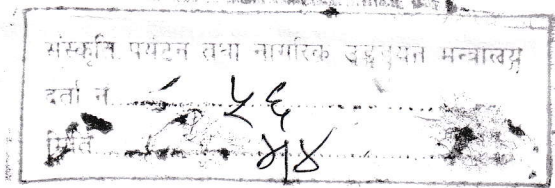 संस्कृति पर्यटन तथा नागरिक उड्डयन मन्त्रालय
दर्ता नं ....... ५६ .......
मिति ....... ५/४ .......